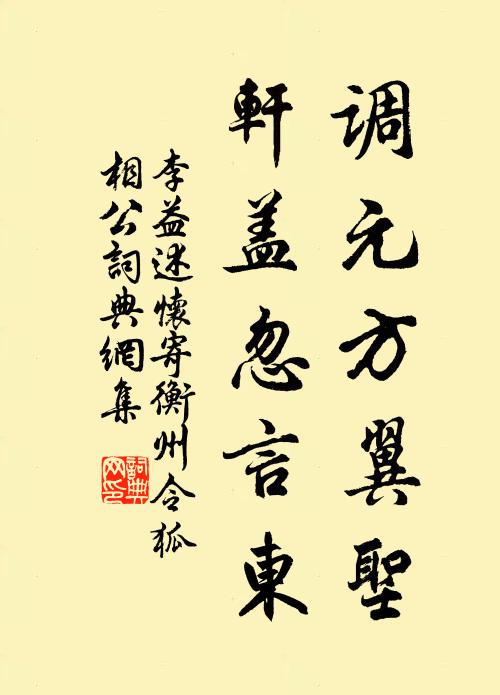 调元方翼聖
軒盖忽言東
李益述懷寄衡州令狐
相公詞典網集
詞典網印